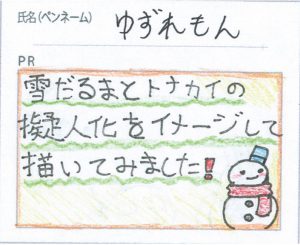 氏名(ペンネーム) ゆずれもん
PR
雪だるまとトナカイの
擬人化をイメージして
描いてみました!